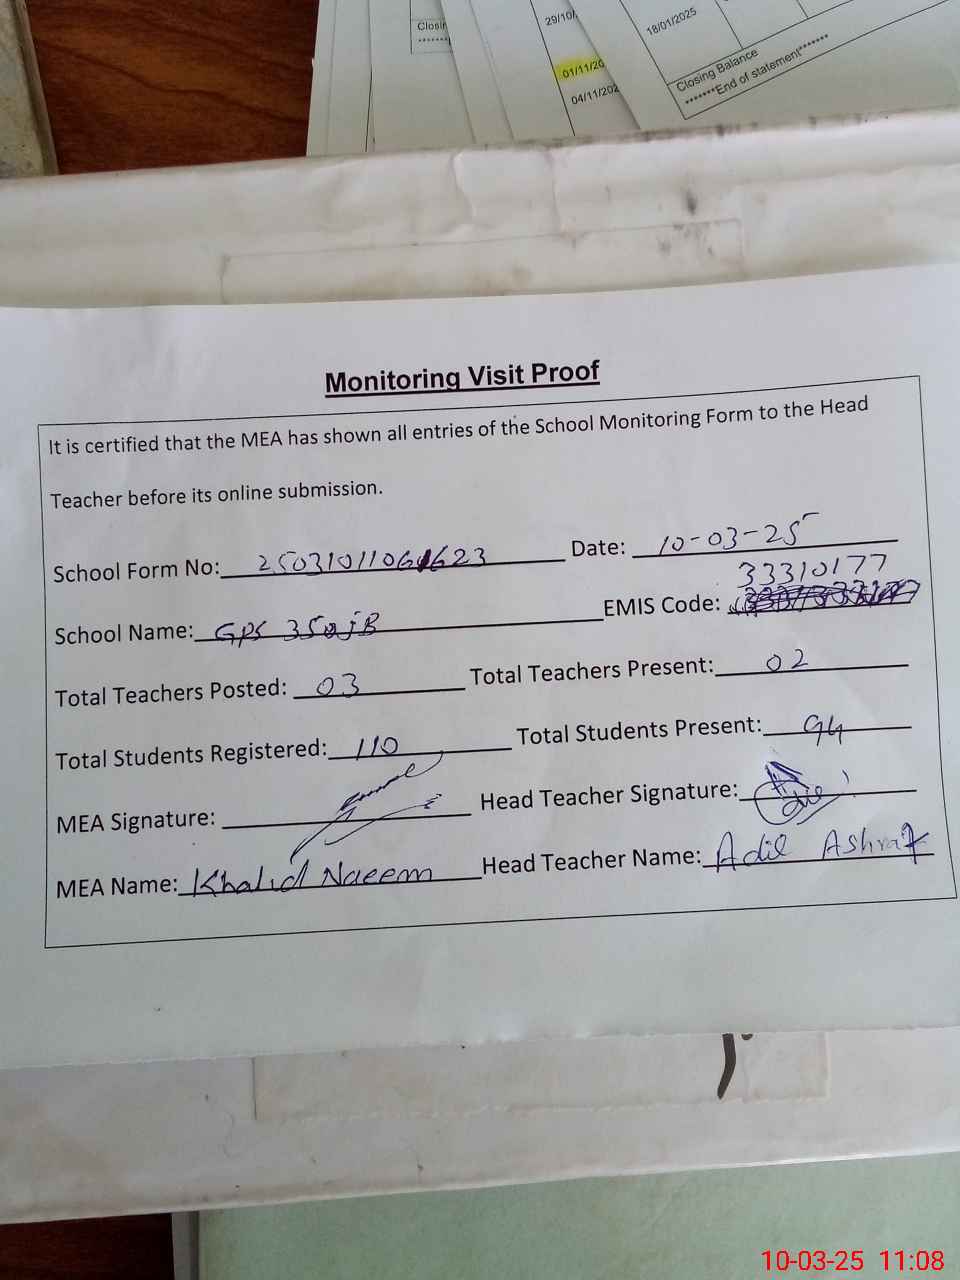 Closin
*******
29/10/
01/11/20
04/11/202
18/01/2025
Closing Balance
*******End of statement*******
Monitoring Visit Proof
It is certified that the MEA has shown all entries of the School Monitoring Form to the Head
Teacher before its online submission.
School Form No: Date: 10-03-25
33310177
School Name: GPS 350jB EMIS Code:
Total Teachers Posted: 03 Total Teachers Present: 02
Total Students Registered: 110 Total Students Present: 94
MEA Signature: Head Teacher Signature:
MEA Name: Khalid Naeem Head Teacher Name: Adil Ashraf
10-03-25 11:08